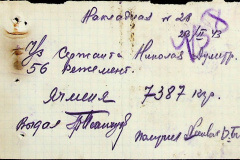 Накладная № 28
29 III 43
Уз Сержанта Николай Думитр.
56 Режемент.
Ячменя 7387 кгр.
Выдал
Получил